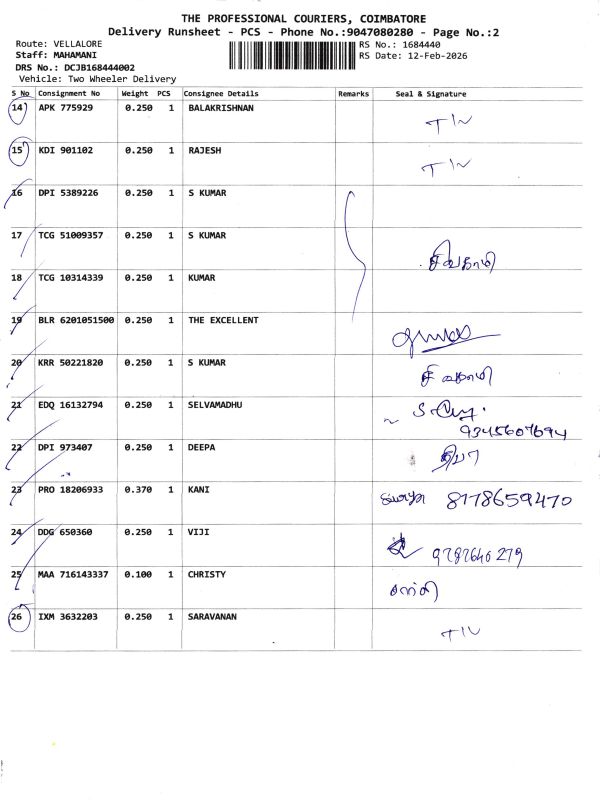 THE PROFESSIONAL COURIERS, COIMBATORE
Delivery Runsheet - PCS - Phone No.:9047080280 - Page No.:2
Route: VELLALORE
RS No.: 1684440
Staff: MAHAMANI
RS Date: 12-Feb-2026
DRS No.: DCJB168444002
Vehicle: Two Wheeler Delivery
S No Consignment No Weight PCS Consignee Details Remarks Seal & Signature
14 APK 775929 0.250 1 BALAKRISHNAN
15 KDI 901102 0.250 1 RAJESH
16 DPI 5389226 0.250 1 S KUMAR
17 TCG 51009357 0.250 1 S KUMAR
18 TCG 10314339 0.250 1 KUMAR
19 BLR 6201051500 0.250 1 THE EXCELLENT
20 KRR 50221820 0.250 1 S KUMAR
21 EDQ 16132794 0.250 1 SELVAMADHU
9345607694
22 DPI 973407 0.250 1 DEEPA
23 PRO 18206933 0.370 1 KANI
8178659470
24 DDG 650360 0.250 1 VIJI
9787640279
25 MAA 716143337 0.100 1 CHRISTY
26 IXM 3632203 0.250 1 SARAVANAN